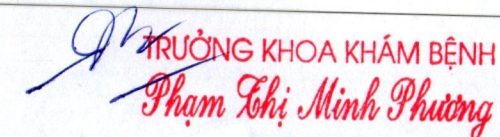 TRƯỞNG KHOA KHÁM BỆNH
Phạm Thị Minh Phương